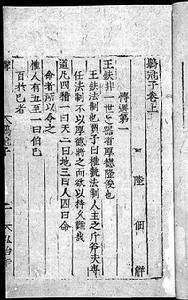 鶡冠子卷上
陸佃解
博選第一
王鈇非一世之器者厚德隆俊也
王鈇法制也賈子曰權勢法制人主之斤斧夫專
任法制不以厚德將之而欲以持久難哉
道凡四稽一曰天二曰地三曰人四曰命
命者所以令之
權人有五至一曰伯己
百於己者